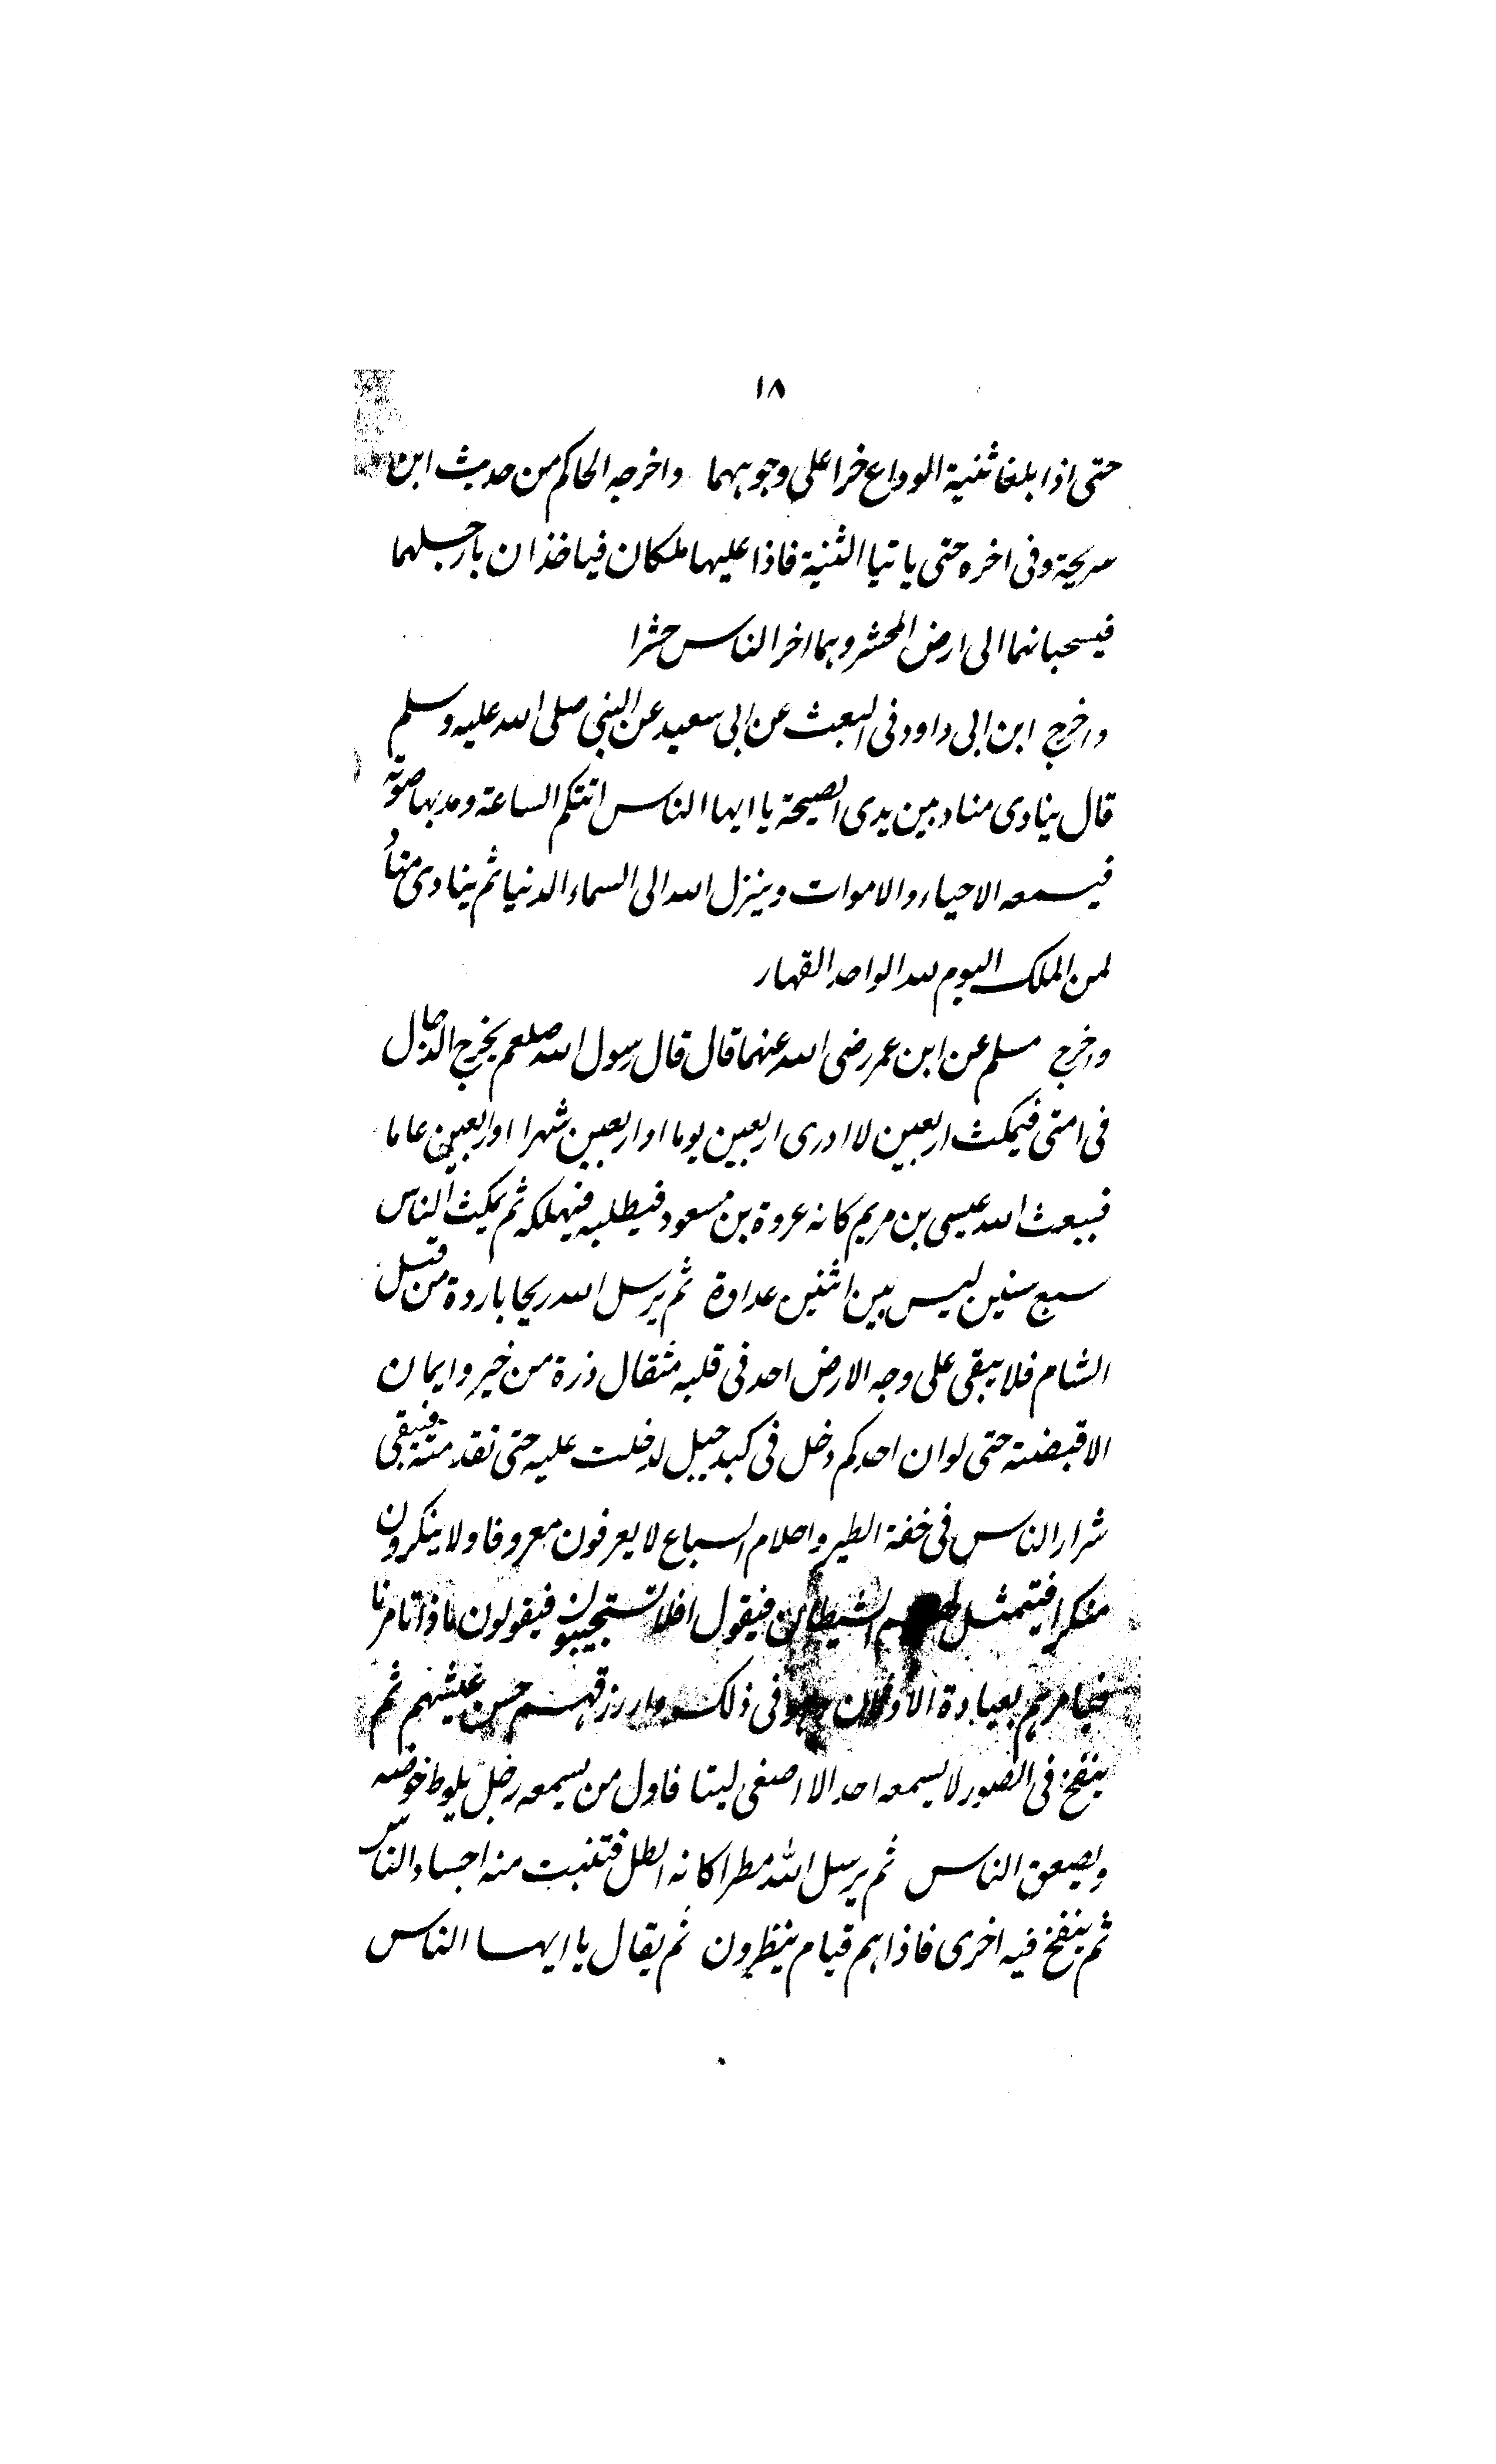 ١٨
حتى اذا بلغا ثنية الوداع خرا على وجوههما واخرجه الحاكم من حديث ابن
سريحة وفى اخره حتى ياتيا الثنية فاذا عليها ملكان فياخذان بارجلهما
فيسحبانهما الى ارض المحشر وهما اخر الناس حشرا
واخرج ابن ابى داود فى البعث عن ابى سعيد عن النبى صلى الله عليه وسلم
قال ينادى مناد بين يدى الصيحة يا ايها الناس اتتكم الساعة ومد بها صوته
فيسمعه الاحياء والاموات وينزل الله الى السماء الدنيا ثم ينادى مناد
لمن الملك اليوم لله الواحد القهار
واخرج مسلم عن ابن عمر رضى الله عنهما قال قال رسول الله صلعم يخرج الدجال
فى امتى فيمكث اربعين لا ادرى اربعين يوما او اربعين شهرا او اربعين عاما
فيبعث الله عيسى بن مريم كانه عروة بن مسعود فيطلبه فيهلكه ثم يمكث الناس
سبع سنين ليس بين اثنين عداوة ثم يرسل الله ريحا باردة من قبل
الشام فلا يبقى على وجه الارض احد فى قلبه مثقال ذرة من خير وايمان
الا قبضته حتى لو ان احدكم دخل فى كبد جبل لدخلت عليه حتى نقد منه فيبقى
شرار الناس فى خفة الطير واحلام السباع لا يعرفون معروفا ولا ينكرون
منكرا فيتمثل لهم الشيطان فيقول افلا تستجيبون فيقولون ماذا تامرنا
فيامرهم بعبادة الاوثان وهو فى ذلك دار رزقهم حسن عيشهم ثم
ينفخ فى الصور لا يسمعه احد الا اصغى ليتا فاول من يسمعه رجل يلوط حوضه
ويصعق الناس ثم يرسل الله مطرا كانه الطل فتنبت منه اجساد الناس
ثم ينفخ فيه اخرى فاذا هم قيام ينظرون ثم يقال يا ايها الناس